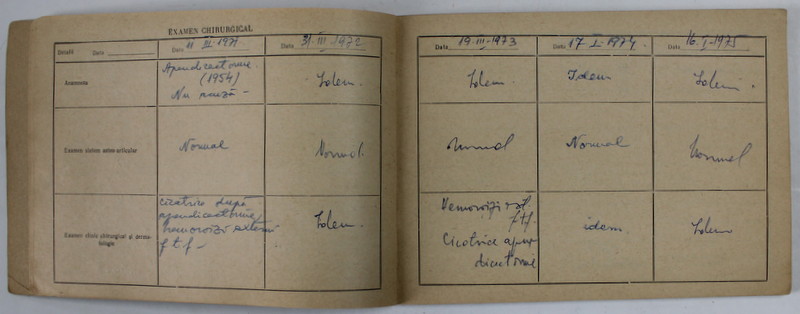 EXAMEN CHIRURGICAL
Detalii Data
Data 11 III-1971.
Data 31-III-1972
Data 19-III-1973
Data 17-I-1974.
Data 16-I-1975
Anamneza
Apendicectomie.
(1954)
Nu acuză -
Idem.
Idem.
Idem
Idem.
Examen sistem osteo-articular
Normal
Normal.
Normal
Normal
Normal
Examen clinic chirurgical și dermatologic
cicatrice după
apendicectomie,
hemoroizi externi
f t f -
Idem.
Hemoroizi ext.
f t f.
Cicatrice apen-
dicectomie
idem.
Idem